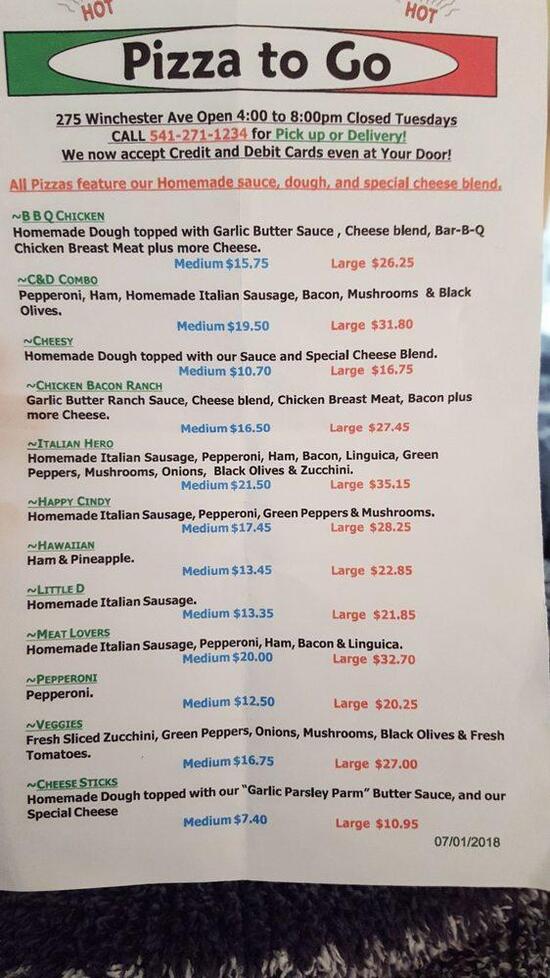 HOT HOT
Pizza to Go
275 Winchester Ave Open 4:00 to 8:00pm Closed Tuesdays
CALL 541-271-1234 for Pick up or Delivery!
We now accept Credit and Debit Cards even at Your Door!
All Pizzas feature our Homemade sauce, dough, and special cheese blend.
~B B Q CHICKEN
Homemade Dough topped with Garlic Butter Sauce , Cheese blend, Bar-B-Q
Chicken Breast Meat plus more Cheese.
Medium $15.75 Large $26.25
~C&D COMBO
Pepperoni, Ham, Homemade Italian Sausage, Bacon, Mushrooms & Black
Olives.
Medium $19.50 Large $31.80
~CHEESY
Homemade Dough topped with our Sauce and Special Cheese Blend.
Medium $10.70 Large $16.75
~CHICKEN BACON RANCH
Garlic Butter Ranch Sauce, Cheese blend, Chicken Breast Meat, Bacon plus
more Cheese.
Medium $16.50 Large $27.45
~ITALIAN HERO
Homemade Italian Sausage, Pepperoni, Ham, Bacon, Linguica, Green
Peppers, Mushrooms, Onions, Black Olives & Zucchini.
Medium $21.50 Large $35.15
~HAPPY CINDY
Homemade Italian Sausage, Pepperoni, Green Peppers & Mushrooms.
Medium $17.45 Large $28.25
~HAWAIIAN
Ham & Pineapple.
Medium $13.45 Large $22.85
~LITTLE D
Homemade Italian Sausage.
Medium $13.35 Large $21.85
~MEAT LOVERS
Homemade Italian Sausage, Pepperoni, Ham, Bacon & Linguica.
Medium $20.00 Large $32.70
~PEPPERONI
Pepperoni.
Medium $12.50 Large $20.25
~VEGGIES
Fresh Sliced Zucchini, Green Peppers, Onions, Mushrooms, Black Olives & Fresh
Tomatoes.
Medium $16.75 Large $27.00
~CHEESE STICKS
Homemade Dough topped with our "Garlic Parsley Parm" Butter Sauce, and our
Special Cheese
Medium $7.40 Large $10.95
07/01/2018